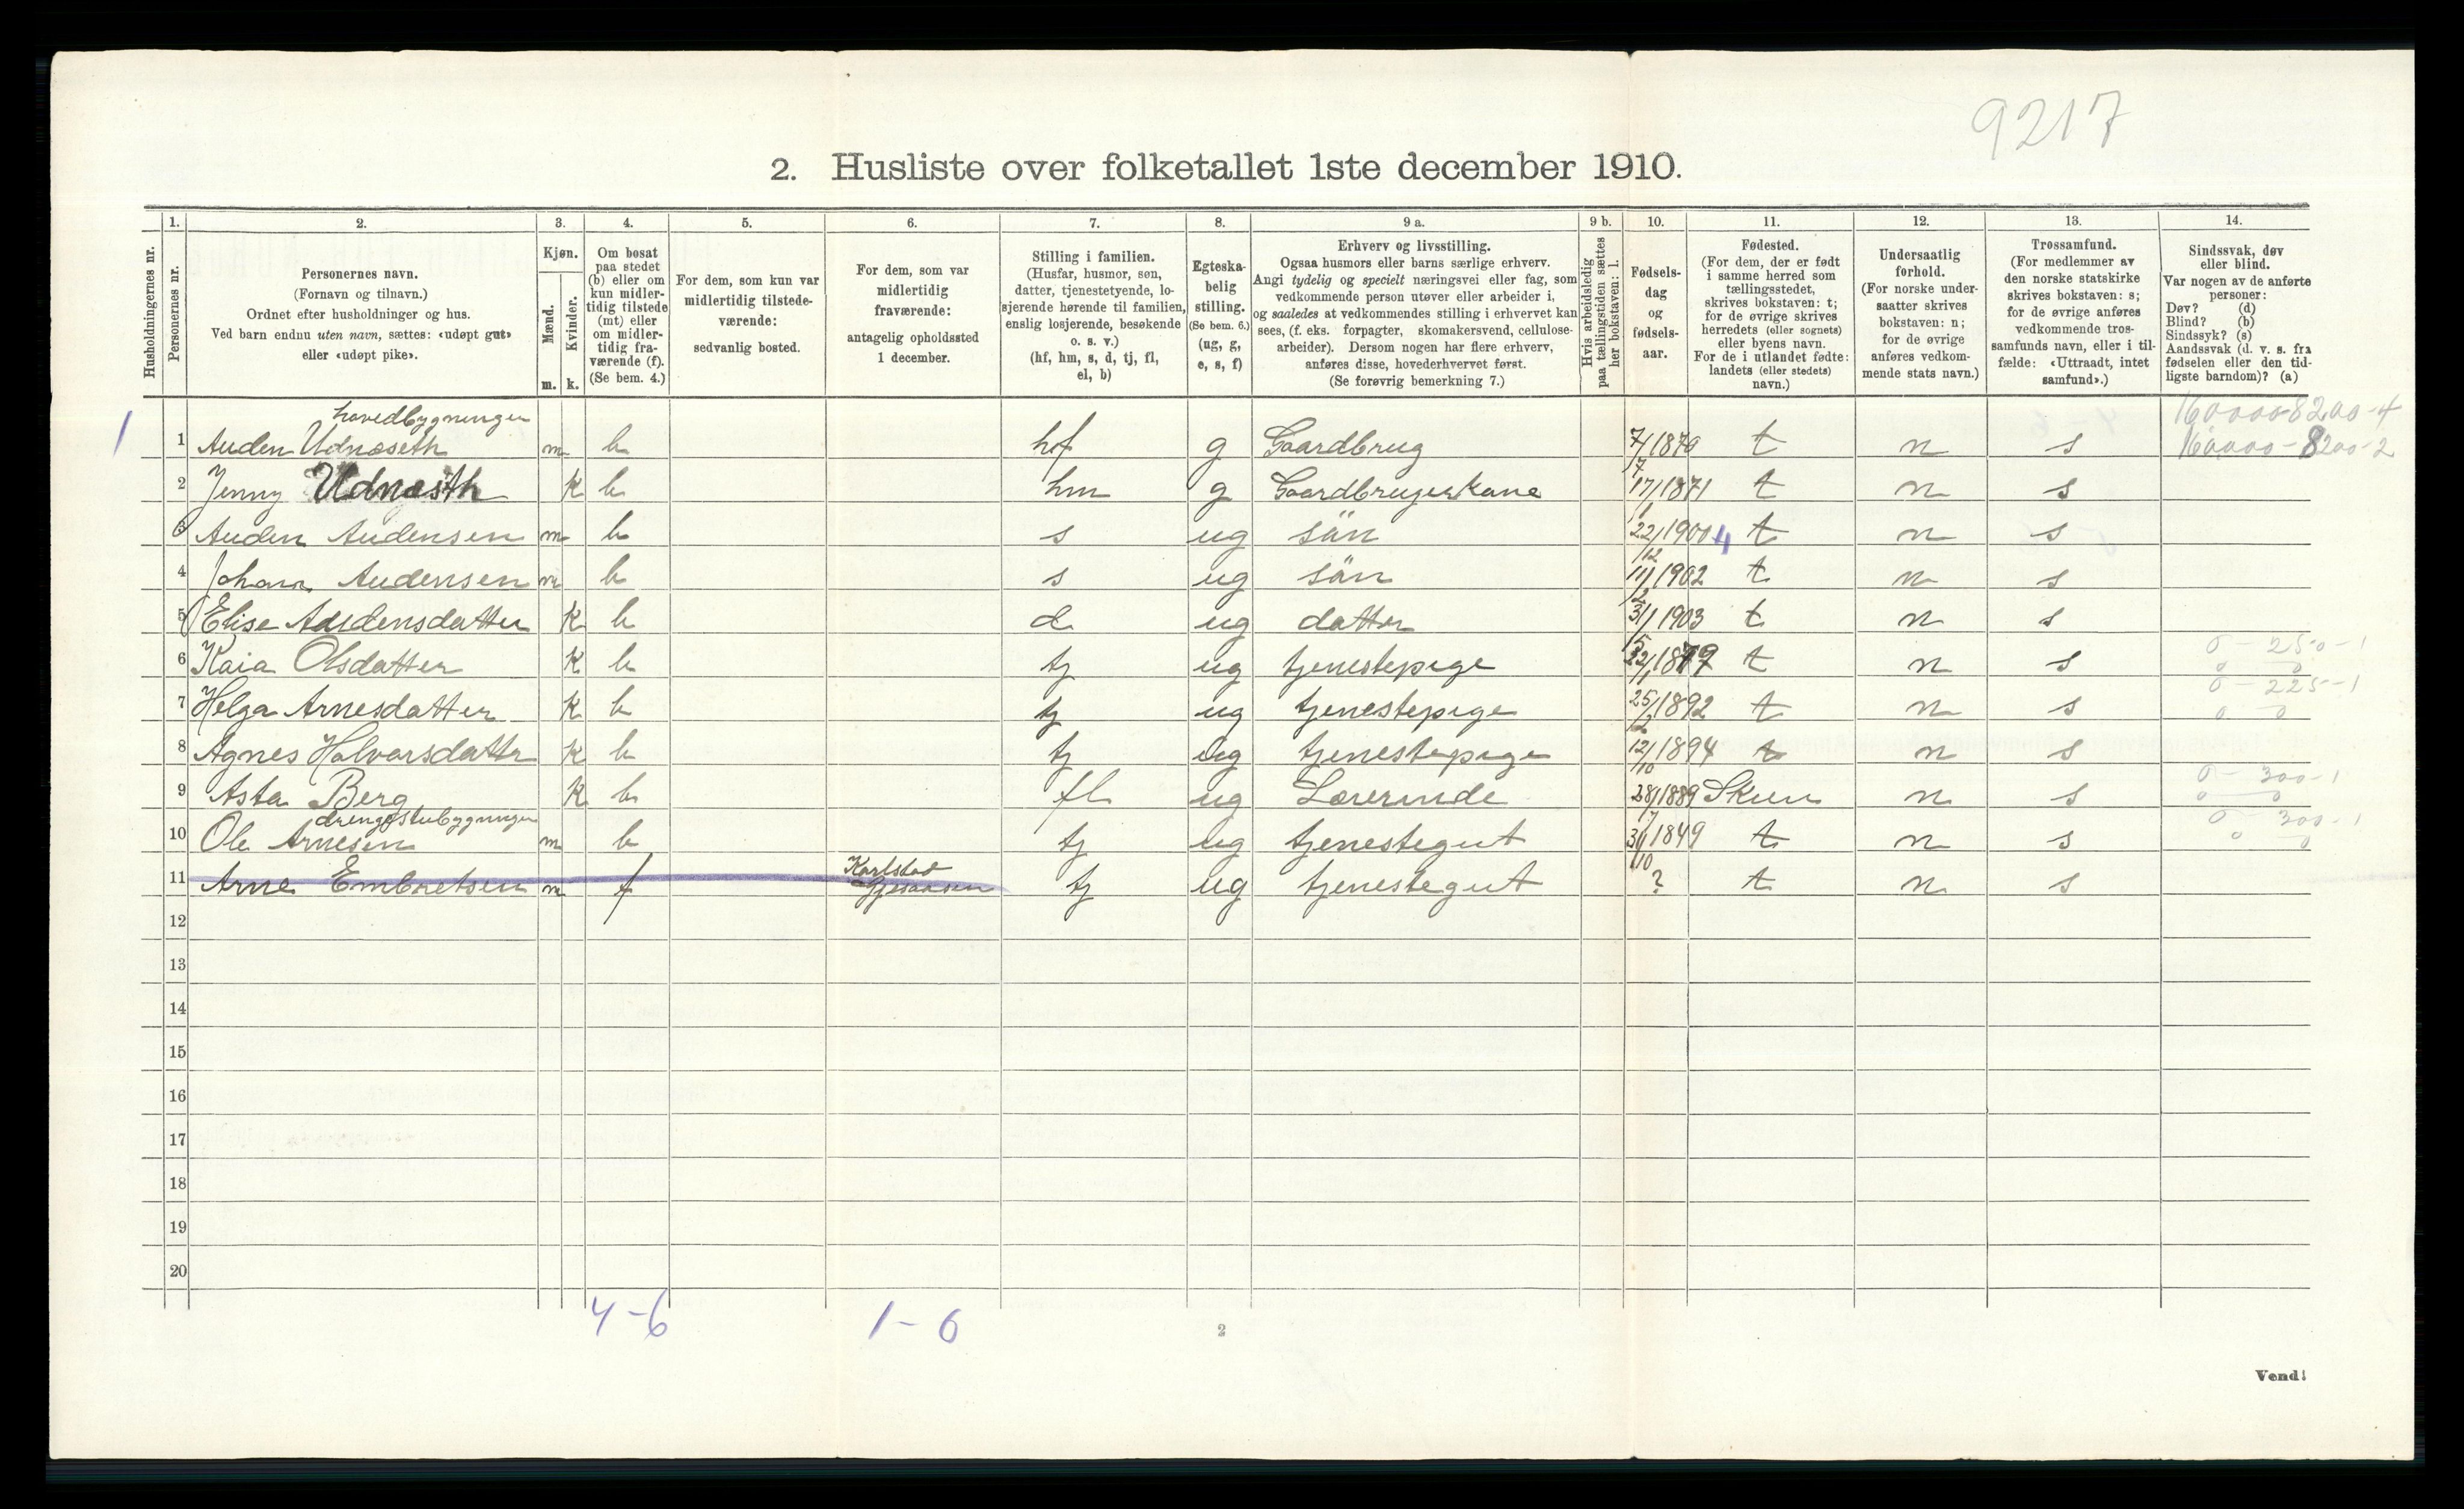 9217
2. Husliste over folketallet 1ste december 1910.
1. 2. 3. 4. 5. 6. 7. 8. 9 a. 9 b. 10. 11. 12. 13. 14.
Husholdningernes nr.
Personernes nr.
Personernes navn.
(Fornavn og tilnavn.)
Ordnet efter husholdninger og hus.
Ved barn endnu uten navn, sættes: «udøpt gut»
eller «udøpt pike».
Kjøn.
Mænd.
Kvinder.
m. k.
Om bosat
paa stedet
(b) eller om
kun midler-
tidig tilstede
(mt) eller
om midler-
tidig fra-
værende (f).
(Se bem. 4.)
For dem, som kun var
midlertidig tilstede-
værende:
sedvanlig bosted.
For dem, som var
midlertidig
fraværende:
antagelig opholdssted
1 december.
Stilling i familien.
(Husfar, husmor, søn,
datter, tjenestetyende, lo-
sjerende hørende til familien,
enslig losjerende, besøkende
o. s. v.)
(hf, hm, s, d, tj, fl,
el, b)
Egteska-
belig
stilling.
(Se bem. 6.)
(ug, g,
e, s, f)
Erhverv og livsstilling.
Ogsaa husmors eller barns særlige erhverv.
Angi tydelig og specielt næringsvei eller fag, som
vedkommende person utøver eller arbeider i,
og saaledes at vedkommendes stilling i erhvervet kan
sees, (f. eks. forpagter, skomakersvend, cellulose-
arbeider). Dersom nogen har flere erhverv,
anføres disse, hovederhvervet først.
(Se forøvrig bemerkning 7.)
Hvis arbeidsledig
paa tællingstiden sættes
her bokstaven: l.
Fødsels-
dag
og
fødsels-
aar.
Fødested.
(For dem, der er født
i samme herred som
tællingsstedet,
skrives bokstaven: t;
for de øvrige skrives
herredets (eller sognets)
eller byens navn.
For de i utlandet fødte:
landets (eller stedets)
navn.)
Undersaatlig
forhold.
(For norske under-
saatter skrives
bokstaven: n;
for de øvrige
anføres vedkom-
mende stats navn.)
Trossamfund.
(For medlemmer av
den norske statskirke
skrives bokstaven: s;
for de øvrige anføres
vedkommende tros-
samfunds navn, eller i til-
fælde: «Uttraadt, intet
samfund».)
Sindssvak, døv
eller blind.
Var nogen av de anførte
personer:
Døv? (d)
Blind? (b)
Sindssyk? (s)
Aandssvak (d. v. s. fra
fødselen eller den tid-
ligste barndom)? (a)
hovedbygningen 160000-8200-4
1 1 Auden Udnæseth m b hf g Gaardbrug 7/7 1870 t n s 160000-8200-2
2 Jenny Udnæsth k b hm g Gaardbrugerkane 17/1 1871 t n s
3 Auden Audensen m b s ug sän 22/12 1900 4 t n s
4 Johan Audensen m b s ug sän 11/2 1902 t n s
5 Elise Audensdatter k b d ug datter 31/5 1903 t n s
6 Kaia Olsdatter k b tj ug tjenestepige 22/1 1879 t n s 0-250-1
0 0
7 Helga Arnesdatter k b tj ug tjenestepige 25/2 1892 t n s 0-225-1
0 0
8 Agnes Halvorsdattr k b tj ug tjenestepige 12/10 1894 t n s
9 Asta Berg k b fl ug Lærerinde 28/7 1889 Skien n s 0-300-1
0 0
drengestubygningen
10 Ole Arnesen m b tj ug tjenestegut 30/10 1849 t n s 0 300-1
0 0
Karlstad
11 Arne Embretsen m f Gjesaasen tj ug tjenestegut ? t n s
12
13
14
15
16
17
18
19
20
4-6 1-0
2
Vend!